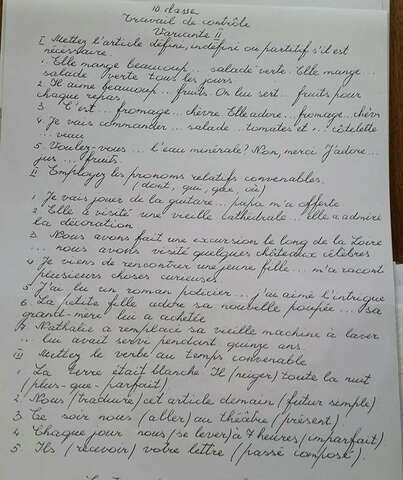 10 classe
Travail de contrôle
Variante II
I Mettez l'article défini, indéfini ou partitif s'il est
nécessaire
1. Elle mange beaucoup... salade verte. Elle mange...
salade verte tous les jours.
2. Il aime beaucoup... fruits. On leu sert... fruits pour
chaque repas.
3. C'est... fromage... chèvre. Elle adore... fromage... chèvre
4. Je vais commander... salade... tomates et... côtelette
... veau
5. Voulez-vous... l'eau minérale? Non, merci. J'adore...
jus... fruits.
II Employez les pronoms relatifs convenables.
(dont, que, qui, où)
1. Je vais jouer de la guitare... papa m'a offerte
2. Elle a visité une vieille cathédrale... elle a admiré
la décoration
3. Nous avons fait une excursion le long de la Loire
... nous avons visité quelques châteaux célèbres
4. Je viens de rencontrer une jeune fille... m'a racont
plusieurs choses curieuses
5. J'ai lu un roman policier... j'ai aimé l'intrigue
6. La petite fille adore sa nouvelle poupée... sa
grand-mère lui a achetée
7. Nathalie a remplacé sa vieille machine à laver
... lui avait servi pendant quinze ans.
III Mettez le verbe au temps convenable
1. La terre était blanche. Il (neiger) toute la nuit
(plus-que-parfait)
2. Nous (traduire) cet article demain (futur simple)
3. Ce soir nous (aller) au théâtre (présent)
4. Chaque jour nous (se lever) à 7 heures (imparfait)
5. Ils (recevoir) votre lettre (passé composé).